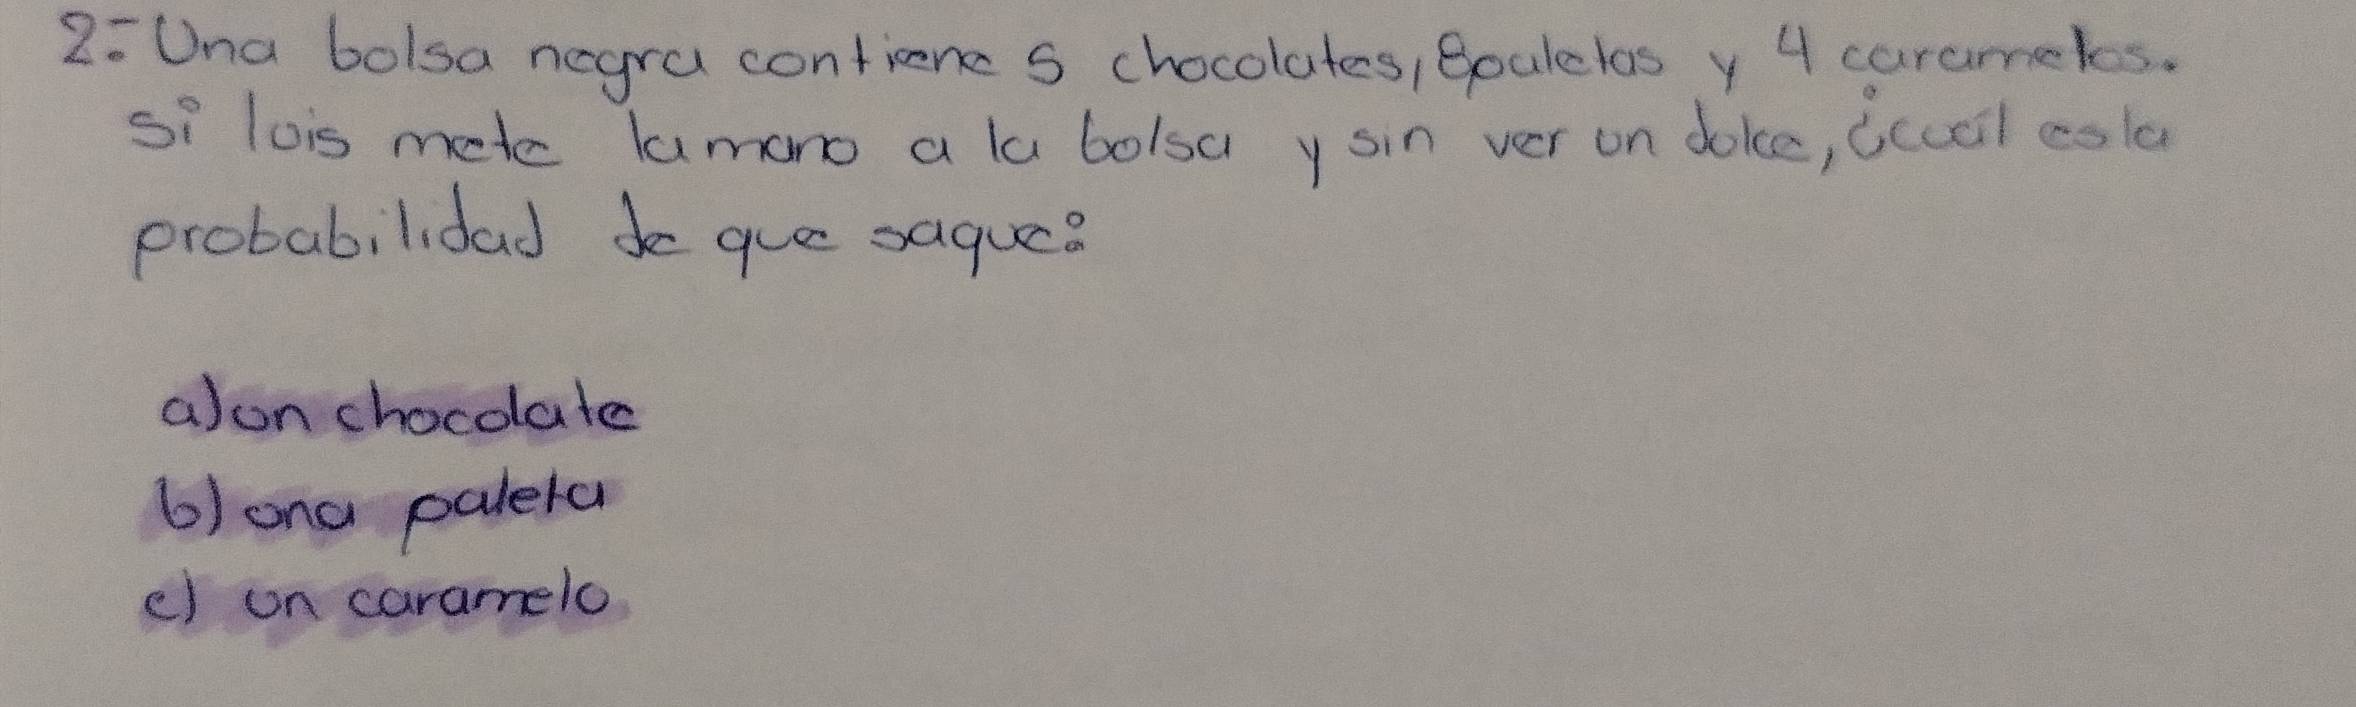 2.- Una bolsa negra contiene 5 chocolates, 8 paletas y 4 caramelos.
si luis mete la mano a la bolsa y sin ver un dolce, ¿cuál es la
probabilidad de que saque:
a) un chocolate
b) una paleta
c) un caramelo